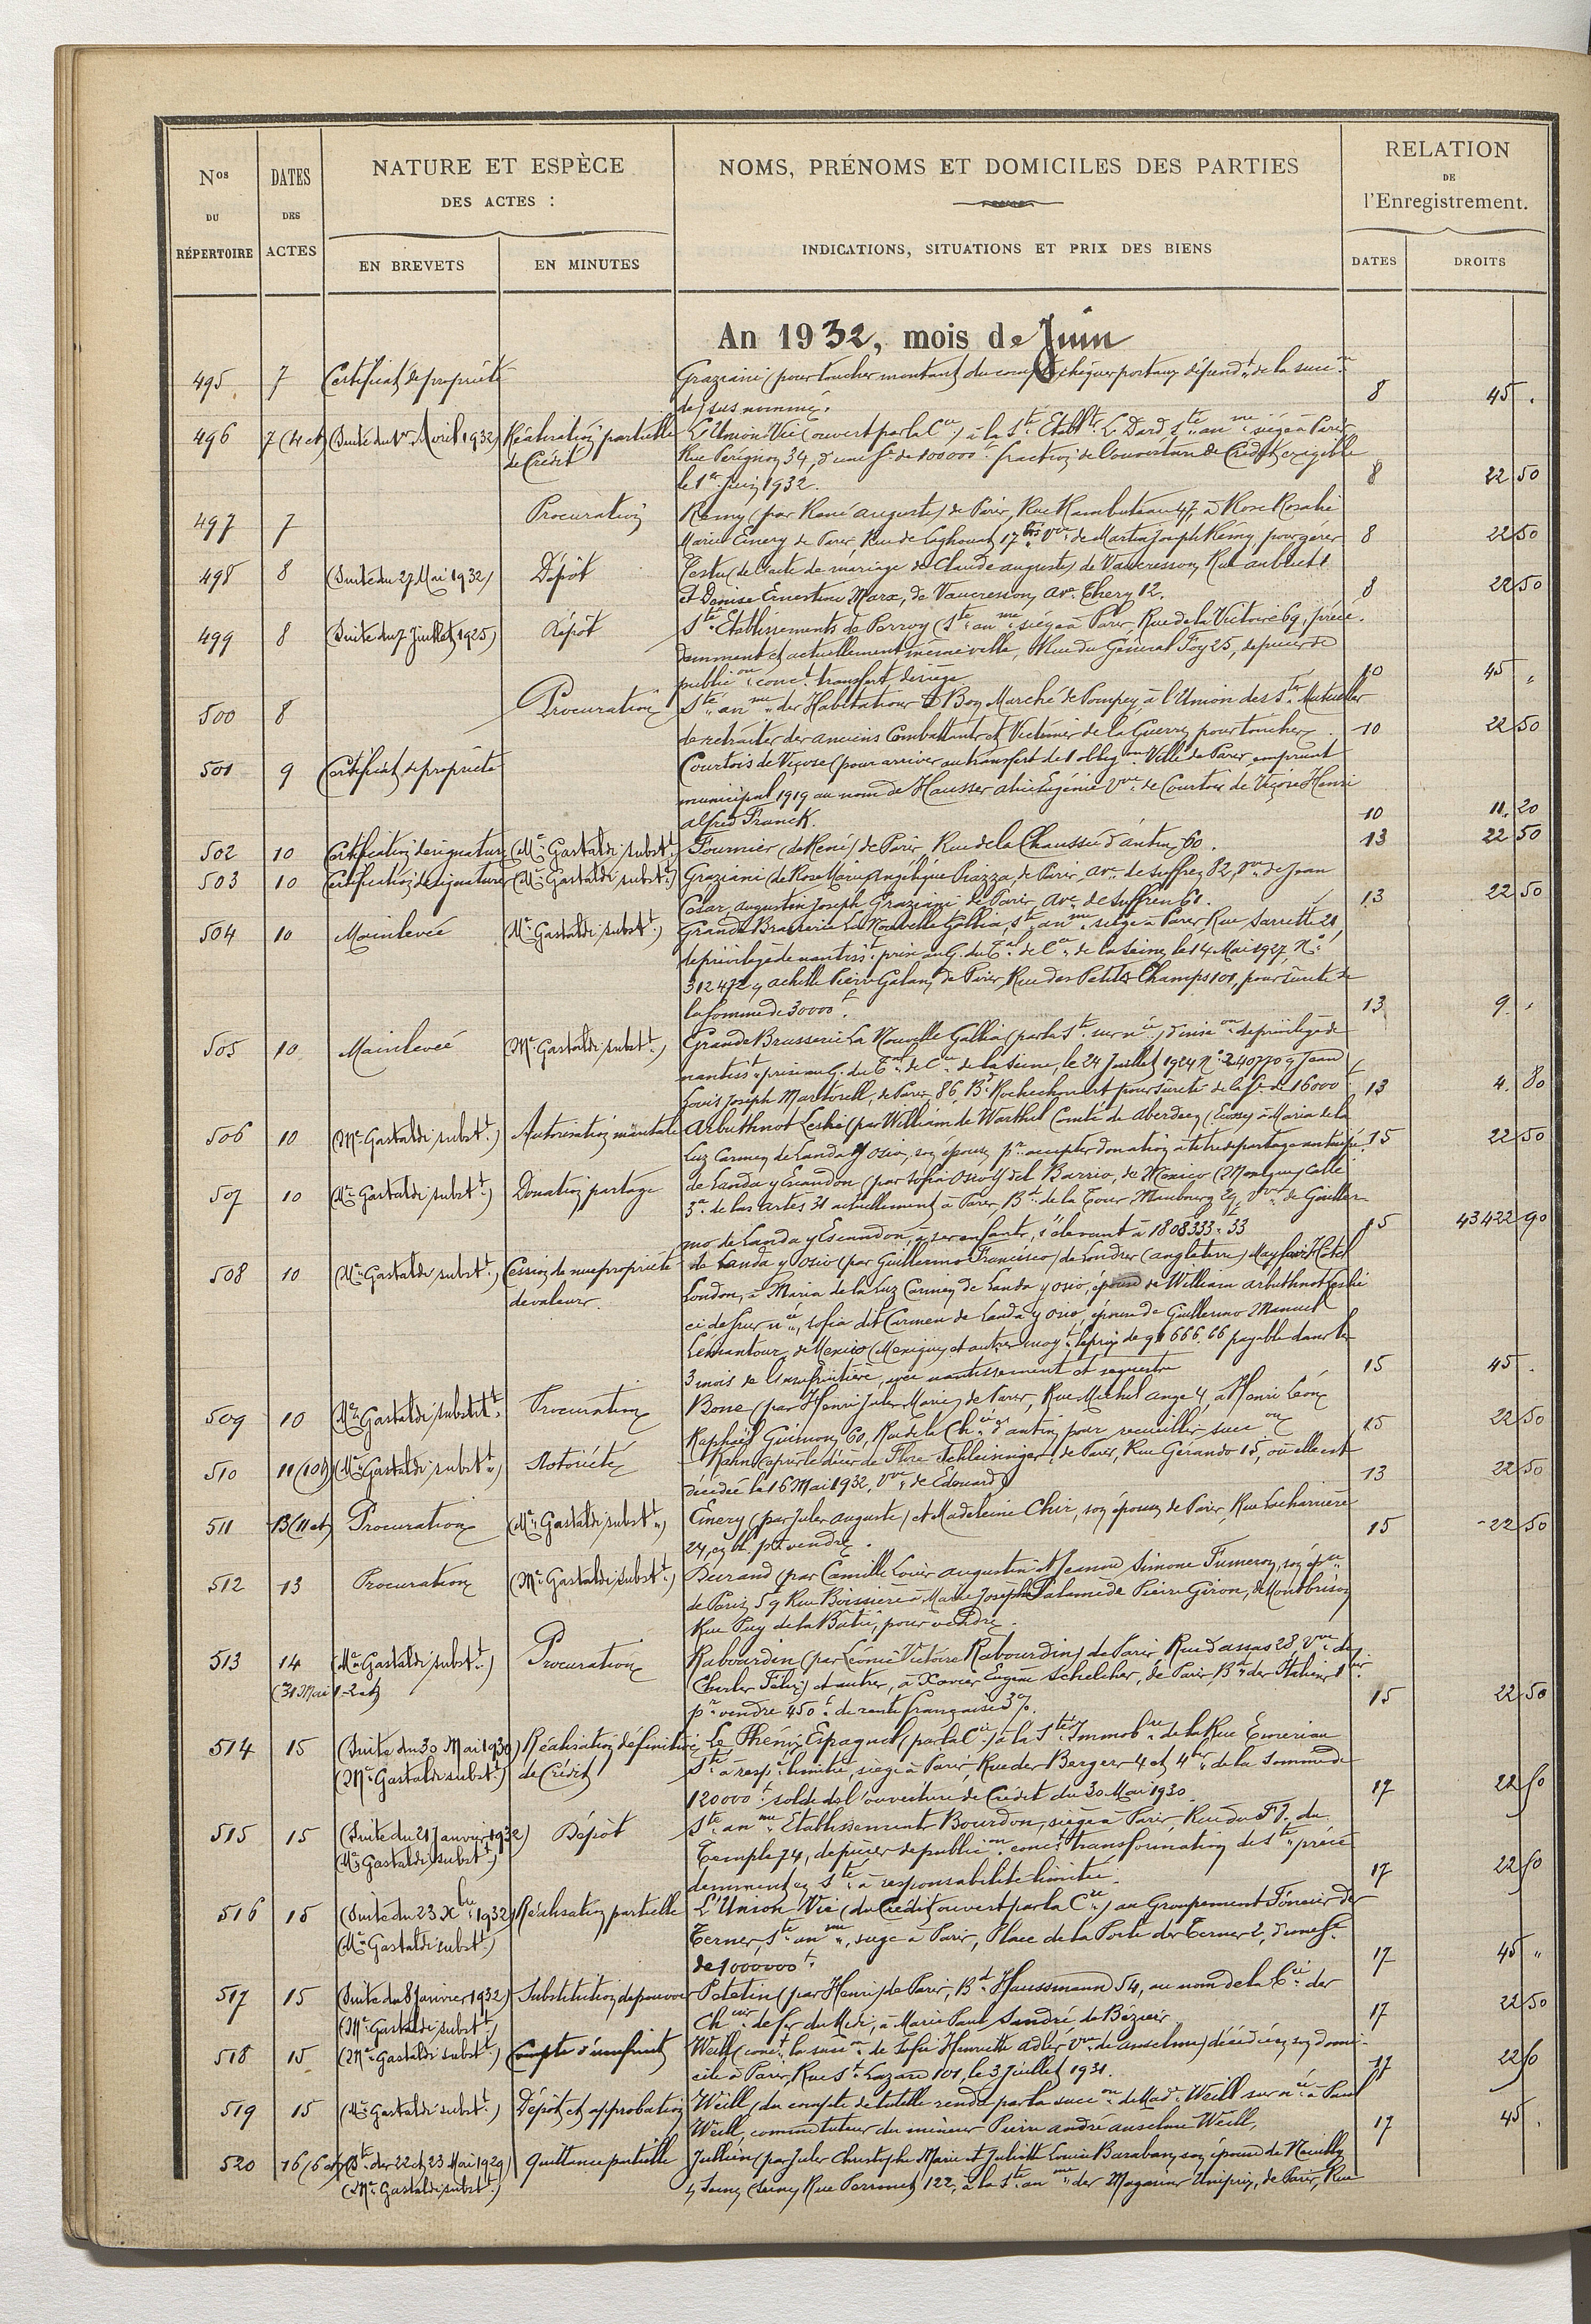 Nos DU RÉPERTOIRE
DATES DES ACTES
NATURE ET ESPÈCE
DES ACTES :
EN BREVETS
EN MINUTES
NOMS, PRÉNOMS ET DOMICILES DES PARTIES
INDICATIONS, SITUATIONS ET PRIX DES BIENS
RELATION
DE
l'Enregistrement.
DATES
DROITS
An 1932, mois de Juin
495 7 Certificat de propriété Graziani (pour toucher montant du compte chèques postaux dépendt de la succon
de) sus nommé. 8 45 "
496 7 (4 et) (Suite du 1er Avril 1932) Réalisation partielle L'Union Vie (ouvert par la Cie) à la Sté Etablts L. Dard Sté anme siège à Paris
de Crédit Rue Pérignon 34, d'une se de 100000f fraction de l'ouverture de Crédit exigible
le 1er Juin 1932. 8 22 50
497 7 Procuration Rémy (par René Auguste) de Paris, Rue Rambuteau 47, à Rose Rosalie
Marie Emery de Paris, Rue de Laghouat 17bis Vve de Martin Joseph Rémy pour gérer 8 22 50
498 8 (Suite du 27 Mai 1932) Dépôt Testu (de l'acte de mariage de Claude Auguste) de Vaucresson, Rue Aubriet 1
et Denise Ernestine Marx, de Vaucresson, Ave Thery 12. 8 22 50
499 8 (Suite du 7 Juillet 1925) Dépôt Sté Etablissements de Perroy (Sté anme siège à Paris, Rue de la Victoire 69, précé-
demment et actuellement même ville, Rue du Général Foy 25, de pièces de
publicon conct transfert de siège 10 45 "
500 8 Procuration Sté anme des Habitations à Bon Marché de Pompey, à l'Union des Stés Mutuelles
de retraites des anciens Combattants et Victimes de la Guerre, pour toucher. 10 22 50
501 9 Certificat de propriété Courtois de Viçose (pour arriver au transfert de 1 obligon Ville de Paris emprunt
municipal 1919 au nom de Hausser Alice Eugénie Vve de Courtois de Viçose Henri
Alfred Franck. 10 11.20
502 10 Certification de signature (Me Gastaldi substt) Fournier (de René) de Paris, Rue de la Chaussée d'Antin 60. 13 22 50
503 10 Certification de signature (Me Gastaldi substt) Graziani (de Rose Marie Angélique Piazza, de Paris Ave de Suffren 82, Vve de Jean
César, Augustin Joseph Graziani, de Paris, Ave de Suffren 61. 13 22 50
504 10 Mainlevée (Me Gastaldi substt) Grande Brasserie La Nouvelle Gallia, Sté anme siège à Paris, Rue Sarrette 21,
de privilège de nantisst prise au G. du Tal de Cce de la Seine, le 14 Mai 1927, No
312472 q Achille Pierre Galan, de Paris, Rue des Petits Champs 101, pour sûreté de
la somme de 30000f. 13 9. "
505 10 Mainlevée (Me Gastaldi substt) Grande Brasserie La Nouvelle Gallia (par la Sté surnée) d'inson de privilège de
nantisst prise au G. du Tal de Cce de la Seine, le 24 Juillet 1924 No 240770 q Jean
Louis Joseph Martorell, de Paris, 86, Bd Rochechouart pour sûreté de la se de 16000f 13 4. 80
506 10 (Me Gastaldi substt) Autorisation maritale Arbuthnot Leslie (par William de Warthil Comté de Aberdeen (Ecosse) à Maria de la
Luz Carmen de Landa y Osio, son épouse pr accepter donation à titre de partage anticipé. 15 22 50
507 10 (Me Gastaldi substt) Donation partage de Landa y Escandon (par Sofia Osio y del Barrio, de Mexico (Mexique) Calle
3a de las Artes 31 actuellement à Paris, Bd de la Tour Maubourg 29, Vve de Guiller-
mo de Landa y Escandon, à ses enfants, s'élevant à 1808333f33 15 43422 90
508 10 (Me Gastaldi substt) Cession de nue propriété de Landa y Osio (par Guillermo Francisco) de Londres (Angleterre) Mayfair Hôtel
de valeurs. London, à Maria de la Luz Carmen de Landa y Osio, épouse de William Arbuthnot Leslie
ci dessus née, Sofia dit Carmen de Landa y Osio, épouse de Guillermo Manuel
Lemantour, de Mexico (Mexique) et autres moyt le prix de 911 666.66 payable dans les
3 mois de l'usufruitière, avec nantissement et séquestre 15 45 .
509 10 (Me Gastaldi substitt) Procuration Bosse (par Henri Jules Marie) de Paris, Rue Michel Ange 4, à Henri Léon
Raphaël Guimon, 60, Rue de la Chée d'Antin pour recueillir succon 15 22 50
510 11 (10 et) (Me Gastaldi substt) Notoriété Kahn (après le décès de Flore Schleisinger) de Paris, Rue Gérando 15, où elle est
décédée le 16 Mai 1932, Vve de Edouard 13 22 50
511 13 (11 et) Procuration (Me Gastaldi substt) Emery (par Jules Auguste) et Madeleine Chir, son épouse, de Paris, Rue Lacharrière
24, en bl. pr vendre. 15 22 50
512 13 Procuration (Me Gastaldi substt) Durand (par Camille Louis Augustin et Jeanne Simone Fumeron, son épse
de Paris, 59 Rue Boissière à Marie Joseph Palamède Pierre Giron, de Montbrison
Rue Puy de la Bâtie, pour vendre.
513 14 (Me Gastaldi substt) Procuration Rabourdin (par Léonie Victoire Rabourdin) de Paris, Rue d'Assas 28, Vve de
(31 Mai 1-2 et) Charles Félix) et autres, à Xavier Eugène Schelcher, de Paris, Bd des Italiens 1bis
pr vendre 450f de rente française 3%. 15 22 50
514 15 (Suite du 30 Mai 1930) Réalisation définitive Le Phénix Espagnol (par la Cie) à la Sté Immobre de la Rue Emeriau
(Me Gastaldi substt) de Crédit Sté à respé limitée, siège à Paris, Rue des Bergers 4 et 4bis de la somme de
120000f solde de l'ouverture de Crédit du 30 Mai 1930. 17 22 50
515 15 (Suite du 21 Janvier 1932) Dépôt Sté anme Etablissement Bourdon, siège à Paris, Rue du Fg. du
(Me Gastaldi substt) Temple 74, de pièces de publicon conct transformation de Sté précé
demment en Sté à responsabilité limitée. 17 22 50
516 15 (Suite du 23 Xbre 1932) Réalisation partielle L'Union Vie (du Crédit ouvert par la Cie) au Groupement Foncier des
(Me Gastaldi substt) Ternes, Sté anme, siège à Paris, Place de la Porte des Ternes 2, d'une se
de 1000000f. 17 45 "
517 15 (Suite du 8 Janvier 1932) Substitution de pouvoir Petetin (par Henri) de Paris, Bd Haussmann 54, au nom de la Cie des
(Me Gastaldi substt) Chins de fer du Midi, à Marie Paul Sandré de Béziers 17 22 50
518 15 (Me Gastaldi substt) Compte d'usufruit Weill (conct la succon de Sofie Henriette Adler Vve de Anselme) décédée en son domi-
cile à Paris, Rue St Lazare 101, le 3 Juillet 1931. 17 22 50
519 15 (Me Gastaldi substt) Dépôt et approbation Weill (du compte de tutelle rendu par la succon de Made Weill surnée à Paul
Weill, comme tuteur du mineur Pierre André Anselme Weill, 17 45 .
520 16 (6 et) (Ste des 22 et 23 Mai 1929) Quittance partielle Jullien (par Jules Christophe Marie et Juliette Louise Baraban, son épouse de Neuilly
(Me Gastaldi substt) s/ Seine (Seine) Rue Perronet 122, à la Sté anme des Magasins Uniprix, de Paris, Rue